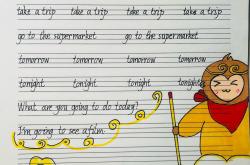 take a trip take a trip take a trip take a trip
go to the supermarket go to the supermarket
tomorrow tomorrow tomorrow tomorrow
tonight tonight tonight tonight
What are you going to do today?
I'm going to see a film.